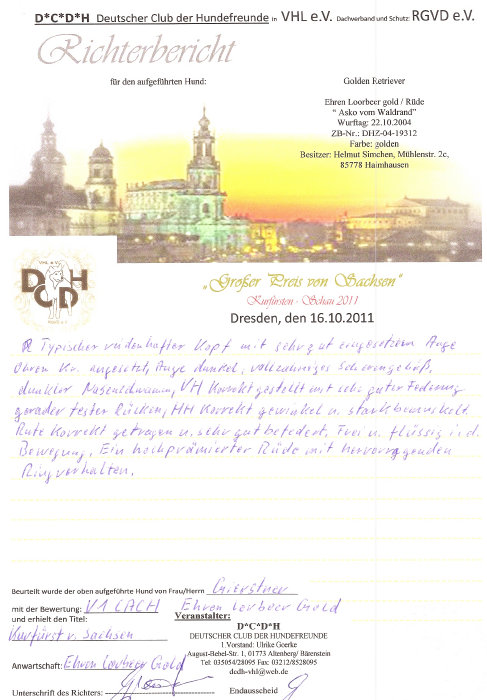 D*C*D*H Deutscher Club der Hundefreunde in VHL e.V. Dachverband und Schutz: RGVD e.V.
Richterbericht
für den aufgeführten Hund:
Golden Retriever
Ehren Loorbeer gold / Rüde
" Asko vom Waldrand"
Wurftag: 22.10.2004
ZB-Nr.: DHZ-04-19312
Farbe: golden
Besitzer: Helmut Simchen, Mühlenstr. 2c,
85778 Haimhausen
VHL e.V.
DCDH
„Großer Preis von Sachsen"
Kurfürsten - Schau 2011
Dresden, den 16.10.2011
Typischer rüdenhafter Kopf mit sehr gut eingesetztem Auge
Ohren Kor. angesetzt, Auge dunkel, vollzahniges Scherengebiß,
dunkler Nasenschwamm, VH Korrekt gestellt mit sehr guter Federung
gerader fester Rücken, HH Korrekt gewinkelt u. stark bemuskelt
Rute Korrekt getragen u. sehr gut befedert. Frei u. flüssig i.d.
Bewegung. Ein hochprämierter Rüde mit hervorragenden
Ringverhalten.
Beurteilt wurde der oben aufgeführte Hund von Frau/Herrn
mit der Bewertung: V1 CACH Ehren Lorbeer Gold
und erhielt den Titel:
Kurfürst v. Sachsen
Veranstalter:
D*C*D*H
DEUTSCHER CLUB DER HUNDEFREUNDE
1.Vorstand: Ulrike Goerke
August-Bebel-Str. 1, 01773 Altenberg/ Bärenstein
Tel: 035054/28095 Fax: 03212/8528095
dcdh-vhl@web.de
Anwartschaft: Ehren Lorbeer Gold
Unterschrift des Richters:
Endausscheid